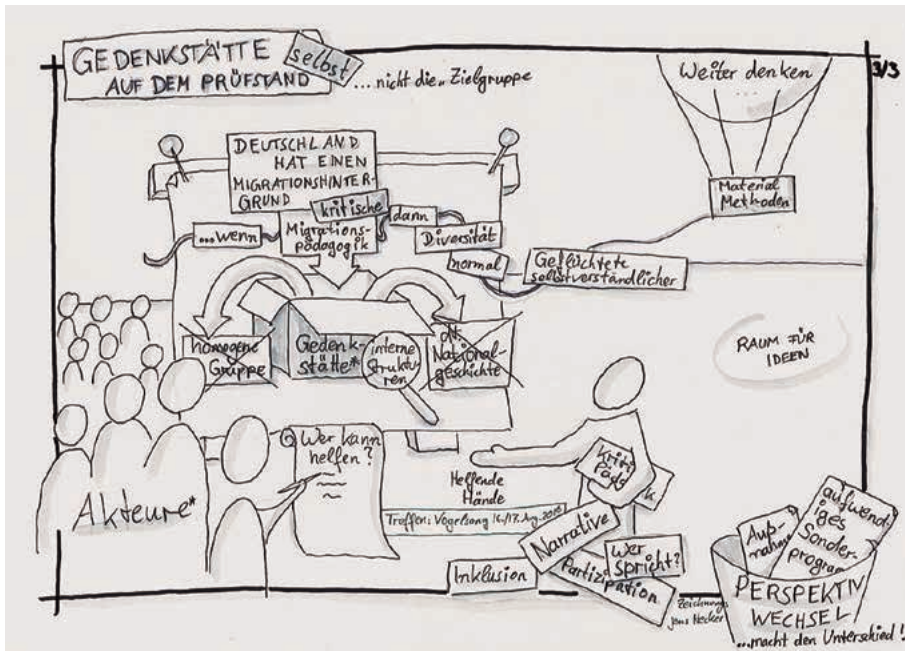 GEDENKSTÄTTE
AUF DEM PRÜFSTAND
selbst
...nicht die „Zielgruppe
Weiter denken
...
3/3
Material
Methoden
DEUTSCHLAND
HAT EINEN
MIGRATIONSHINTER-
GRUND
...wenn
kritische
Migrations-
pädagogik
dann
Diversität
normal
Geflüchtete
selbstverständlicher
homogene
Gruppe
Gedenk-
stätte*
interne
Struktu-
ren
dt.
National-
geschichte
RAUM FÜR
IDEEN
Akteure*
Wer kann
helfen?
Helfende
Hände
Treffen: Vogelsang 16./17. Aug. 2018
Krit
Päd
k.
Narrative
Wer
spricht?
Partizipation
Inklusion
Zeichnung
Jens Necker
Auf-
nahme
aufwendi-
iges
Sonder-
program
PERSPEKTIV
WECHSEL
...macht den Unterschied!